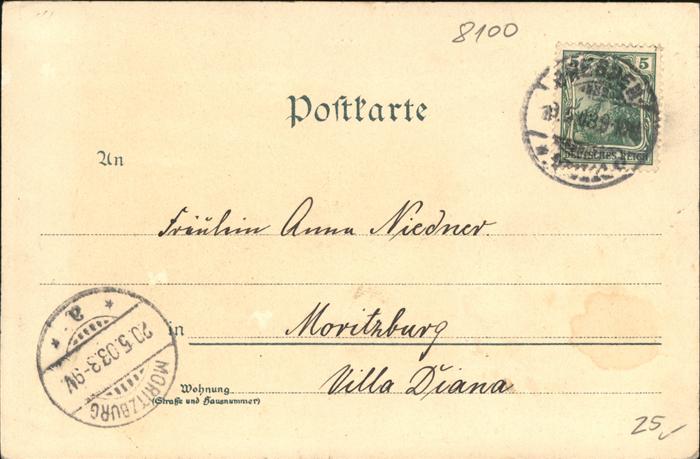 8100
5
DRESDEN
DEUTSCHES REICH
Postkarte
An
Fräulein Anna Niedner.
in Moritzburg
Villa Diana
Wohnung
(Straße und Hausnummer)
a
20.5.03.3-4N
MORITZBURG
25